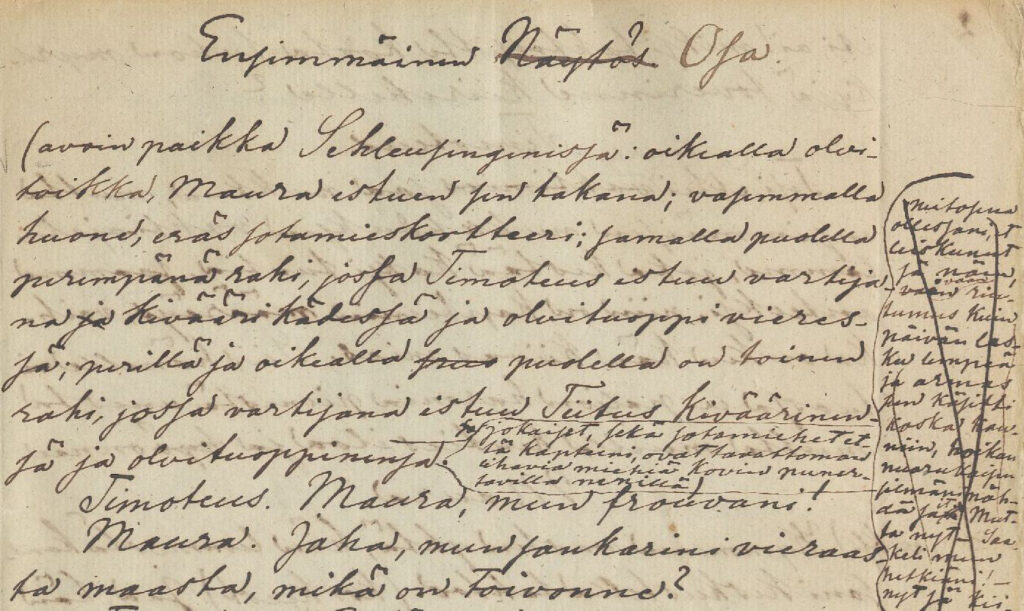 Ensimmäinen Näytös Osa.
(avoin paikka Schleusingenissä: oikealla olvi-
toikka, Maura istuen sen takana; vasemmalla
huone, eräs sotamieskortteeri; samalla puolella
perimpänä rahi, jossa Timoteus istuu vartija-
na ja kivääri kädessä ja olvituoppi vieres-
sä; perillä ja oikealla puolella on toinen
rahi, jossa vartijana istuu Tiitus kiväärinen-
sä ja olvituoppinensa.
jokaiset, sekä sotamiehet et-
tä kapteeni, ovat tavattoman
ihavia miehiä kovin puner-
tavilla nenillä)
Timoteus. Maura, mun frouvani!
Maura. Jaha, mun sankarini vieraas-
ta maasta, mikä on toivonne?
ollessani,
leiskunut
ja noin,
tumus kuin
päivän las-
ku lempeä
ja armas
sen käsitti
koska kau-
niin, hoikan
silmäni näh-
dä
ta nyt
keli mun
hetkiäni! –